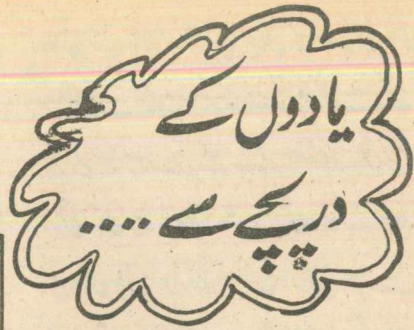 یادوں کے
دریچے سے ....